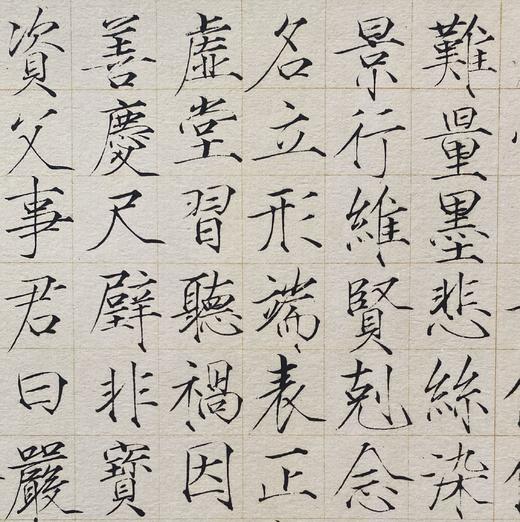 難量墨悲絲染
景行維賢剋念
名立形端表正
虛堂習聽禍因
善慶尺璧非寶
資父事君曰嚴